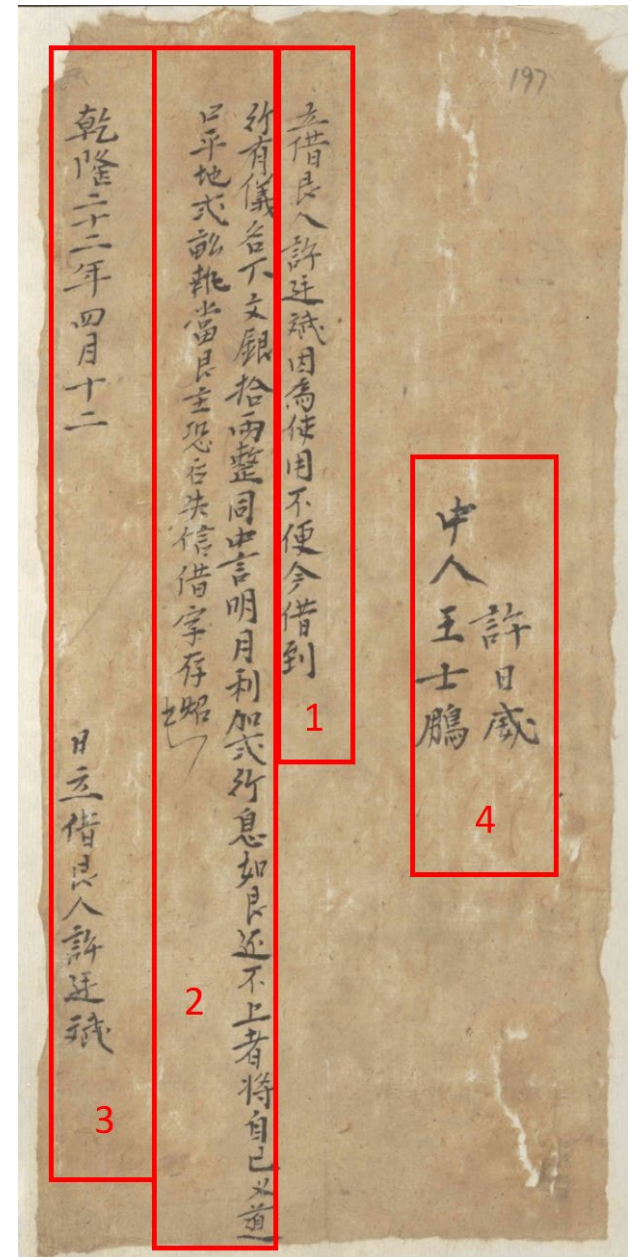 197
立借艮人許廷珷因為使用不便今借到
許有儀名下文銀拾兩整同中言明月利加弍行息如艮还不上者将自己义道
口平地弍畝執當艮主恐后失信借字存照
乾隆二十二年四月十二 日立借艮人許廷珷
中人 許日威
王士鵬
1
2
3
4